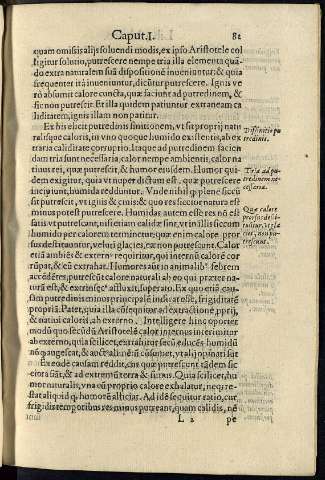 Caput.I. 82
quam omissis alijs soluendi modis, ex ipso Aristotele col
ligitur solutio, putrescere nempe tria illa elementa quā-
do extra naturalem suā dispositionē inueniuntur, & quia
frequenter itā inueniuntur, dicūtur putrescere. Ignis ve
rò absumit calore cuncta, quæ faciunt ad putredinem, &
sic non putrescit. Et illa quidem patiuntur extraneam ca
liditatem, ignis illam non patitur.
Ex his elicit putredinis finitionem, vt sit proprij natu
ralisque caloris, in vno quoque humido existentis, ab ex
tranea caliditate corruptio. Itaque ad putredinem facien
dam tria sunt necessaria, calor nempe ambientis, calor na
tiuus rei, quæ putrescit, & humor eiusdem. Humor qui-
dem exigitur, quia vt nuper dictum est. quæ putrescere
incipiunt, humida redduntur. Vnde nihil qd plenè siccū
sit putrescit, vt ignis & cinis: & quo res siccior natura est
minus potest putrescere. Humidas autem esse res nō est
satis vt putrescant, nisi etiam calidæ sint, vt in illis siccum
humido per calorem terminetur, quæ enim calore pror
sus destituuntur, veluti glacies, ea non putrescunt. Calor
etiā ambiēs & extern requiritur, qui internū calorē cor
rūpat, & eū extrahat. Humores autē in animalib° febrem
accēdētes, putrescūt calore naturali ab eo qui præter na-
turā est, & extrinsec° affluxit, superato. Ex quo etiā, cau-
sam putredinis minus principalē indicat esse, frigiditatē
propriā. Patet, quia illā cōsequitur ad extractionē, pprij,
& natiui caloris, ab externo. Intelligere hinc oportet
modū quo secundū Aristotelē calor internus interimitur
ab externo, quia scilicet, extrahitur secū educēs humidū
nō q augescat, & aucta alienū cōsumet, vt alij opinati sūt
Ex eodē causam reddit, cur quæ putescunt tādem sic-
ciora siāt, & ad extremū terra & fimus. Quia scilicet, hu
mor naturalis, vna cū proprio calore exhalatur, neq; re-
stat aliquid q humorē alliciat. Ad idē sequitur ratio, cur
frigidis temporibus res minus putreant, quam calidis, nē
L 2 pe
Diffinitio pu
tredinis.
Tria ad pu-
tredinem ne-
cessaria.
Quæ calore
prorsus desti-
tuūtur, vt gla
cies, non pu-
trescunt.